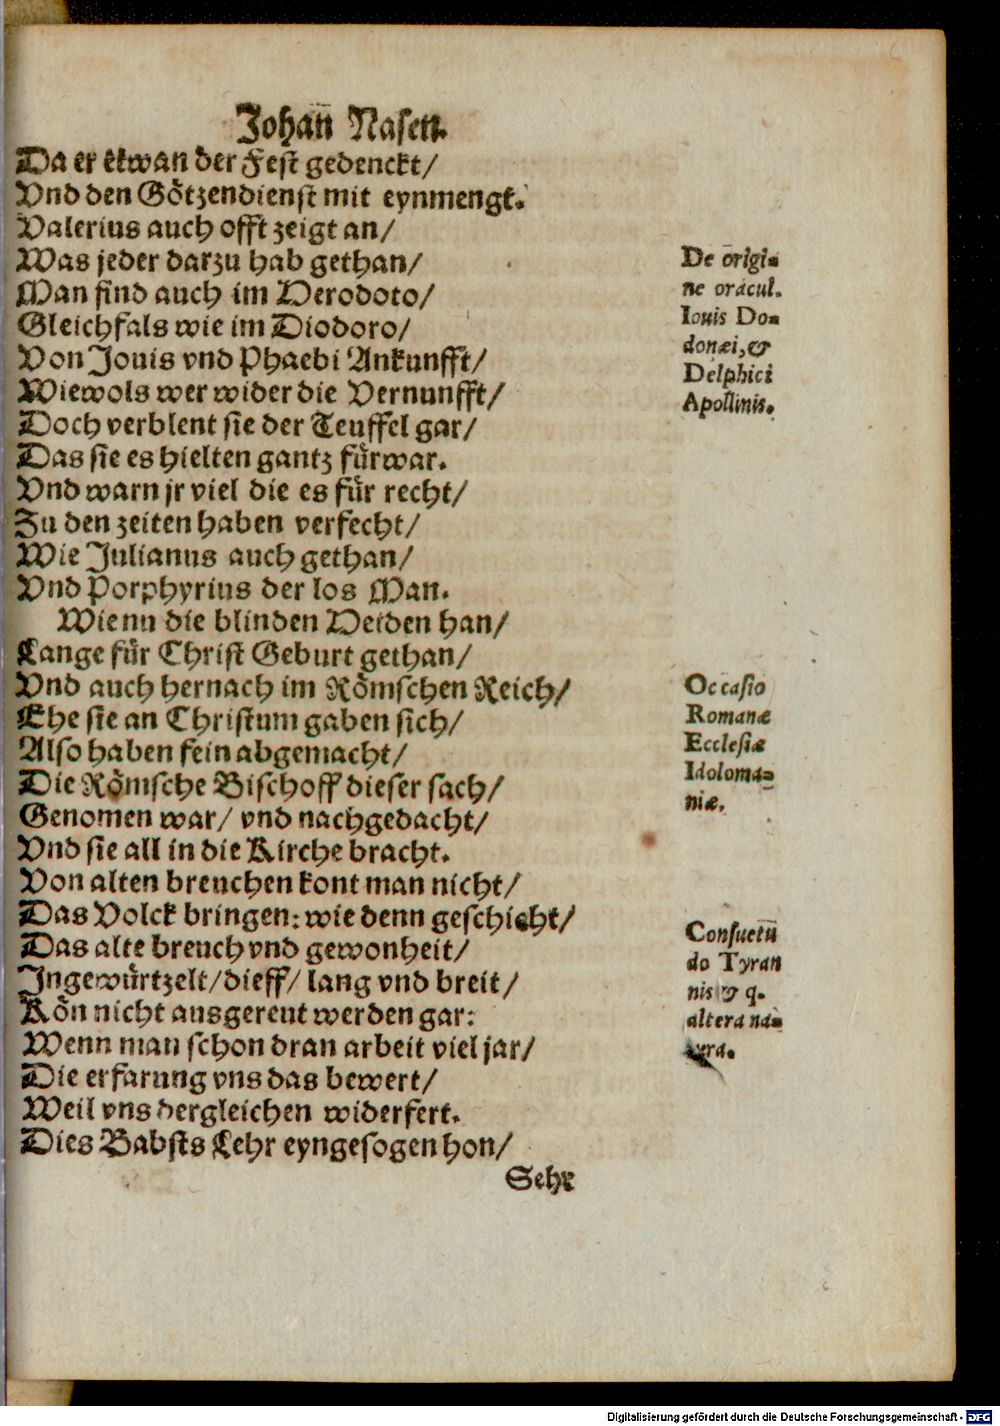 Johan̄ Nasen.
Da er etwan der Fest gedenckt/
Vnd den Götzendienst mit eynmengt.
Valerius auch offt zeigt an/
Was jeder darzu hab gethan/
Man find auch im Herodoto/
Gleichfals wie im Diodoro/
Von Jouis vnd Phaebi Ankunfft/
Wiewols wer wider die Vernunfft/
Doch verblent sie der Teuffel gar/
Das sie es hielten gantz fürwar.
Vnd warn jr viel die es für recht/
Zu den zeiten haben verfecht/
Wie Julianus auch gethan/
Vnd Porphyrius der los Man.
Wie nu die blinden Heiden han/
Lange für Christ Geburt gethan/
Vnd auch hernach im Römschen Reich/
Ehe sie an Christum gaben sich/
Also haben fein abgemacht/
Die Römsche Bischoff dieser sach/
Genomen war/ vnd nachgedacht/
Vnd sie all in die Kirche bracht.
Von alten breuchen kont man nicht/
Das Volck bringen: wie denn geschicht/
Das alte breuch vnd gewonheit/
Ingewürtzelt/dieff/ lang vnd breit/
Kön nicht ausgereut werden gar:
Wenn man schon dran arbeit viel jar/
Die erfarung vns das bewert/
Weil vns dergleichen widerfert.
Dies Babsts Lehr eyngesogen hon/
Sehr
De origi-
ne oracul.
Iouis Do-
donæi, &
Delphici
Apollinis.
Occasio
Romanæ
Ecclesiæ
Idoloma-
niæ.
Consuetū
do Tyran
nis & q.
altera na-
tura.
Digitalisierung gefördert durch die Deutsche Forschungsgemeinschaft - DFG